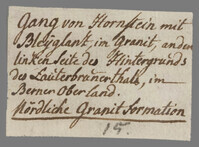 Gang von Hornstein mit
Bleyglantz, in Granit, an der
linken Seite des Hintergrunds
des Lauterbrunerthals, im
Berner Oberland.
Nördliche Granit formation
15.